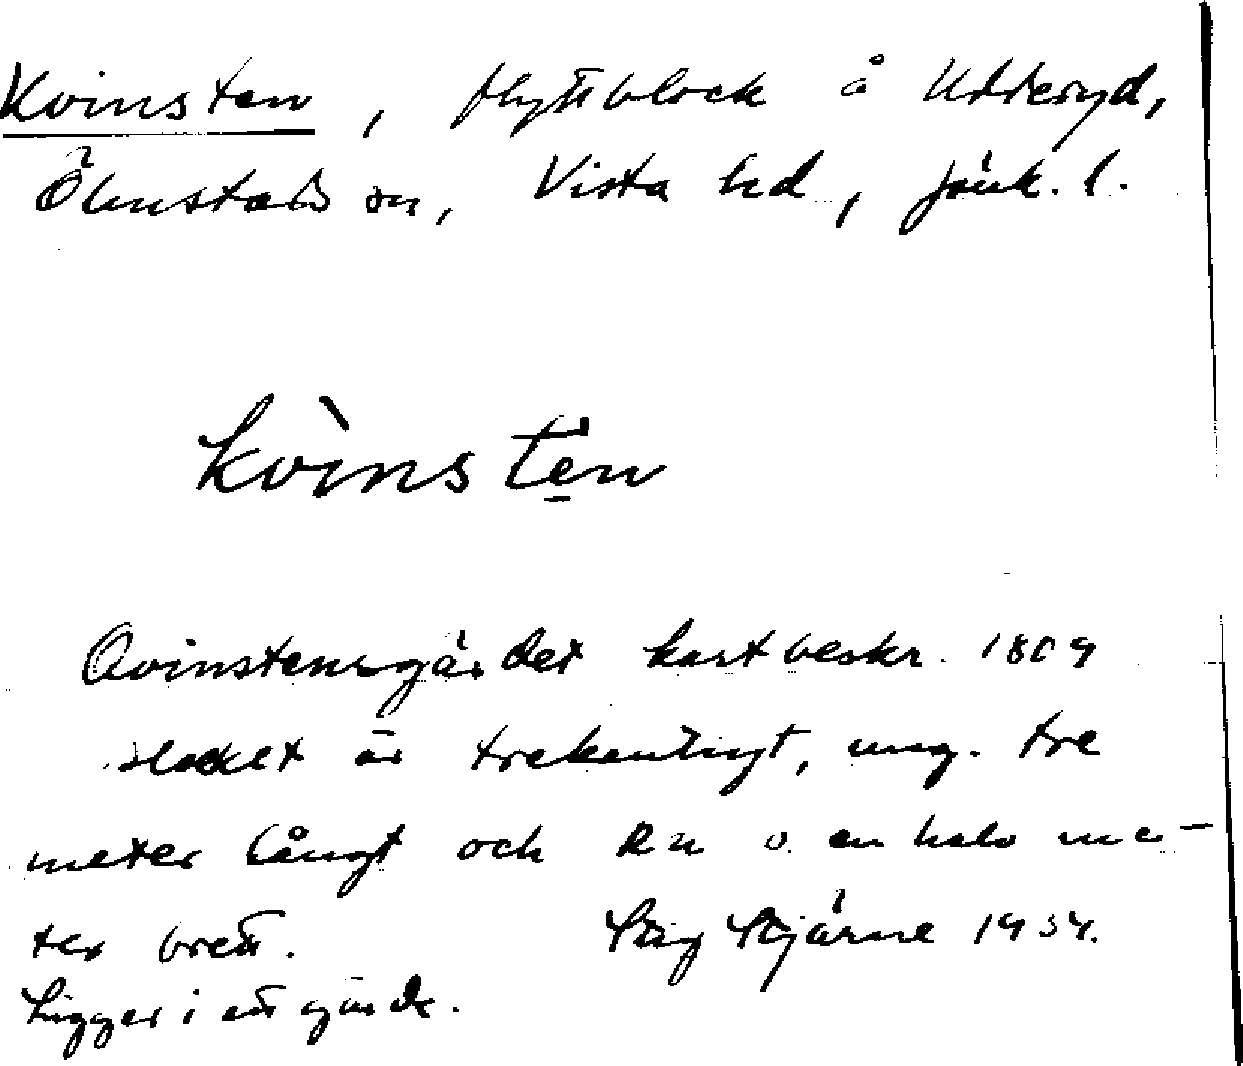 Kvinsten, flyttblock å Udderyd,
Ölmstads sn, Vista hd, Jönk. l.
kvìnstẹn
Qvinstensgärdet kartbeskr. 1809
Blocket är trekantigt, ung. tre
meter långt och en o. en halv me-
ter brett. Stig Stjärne 1934.
Ligger i ett gärde.